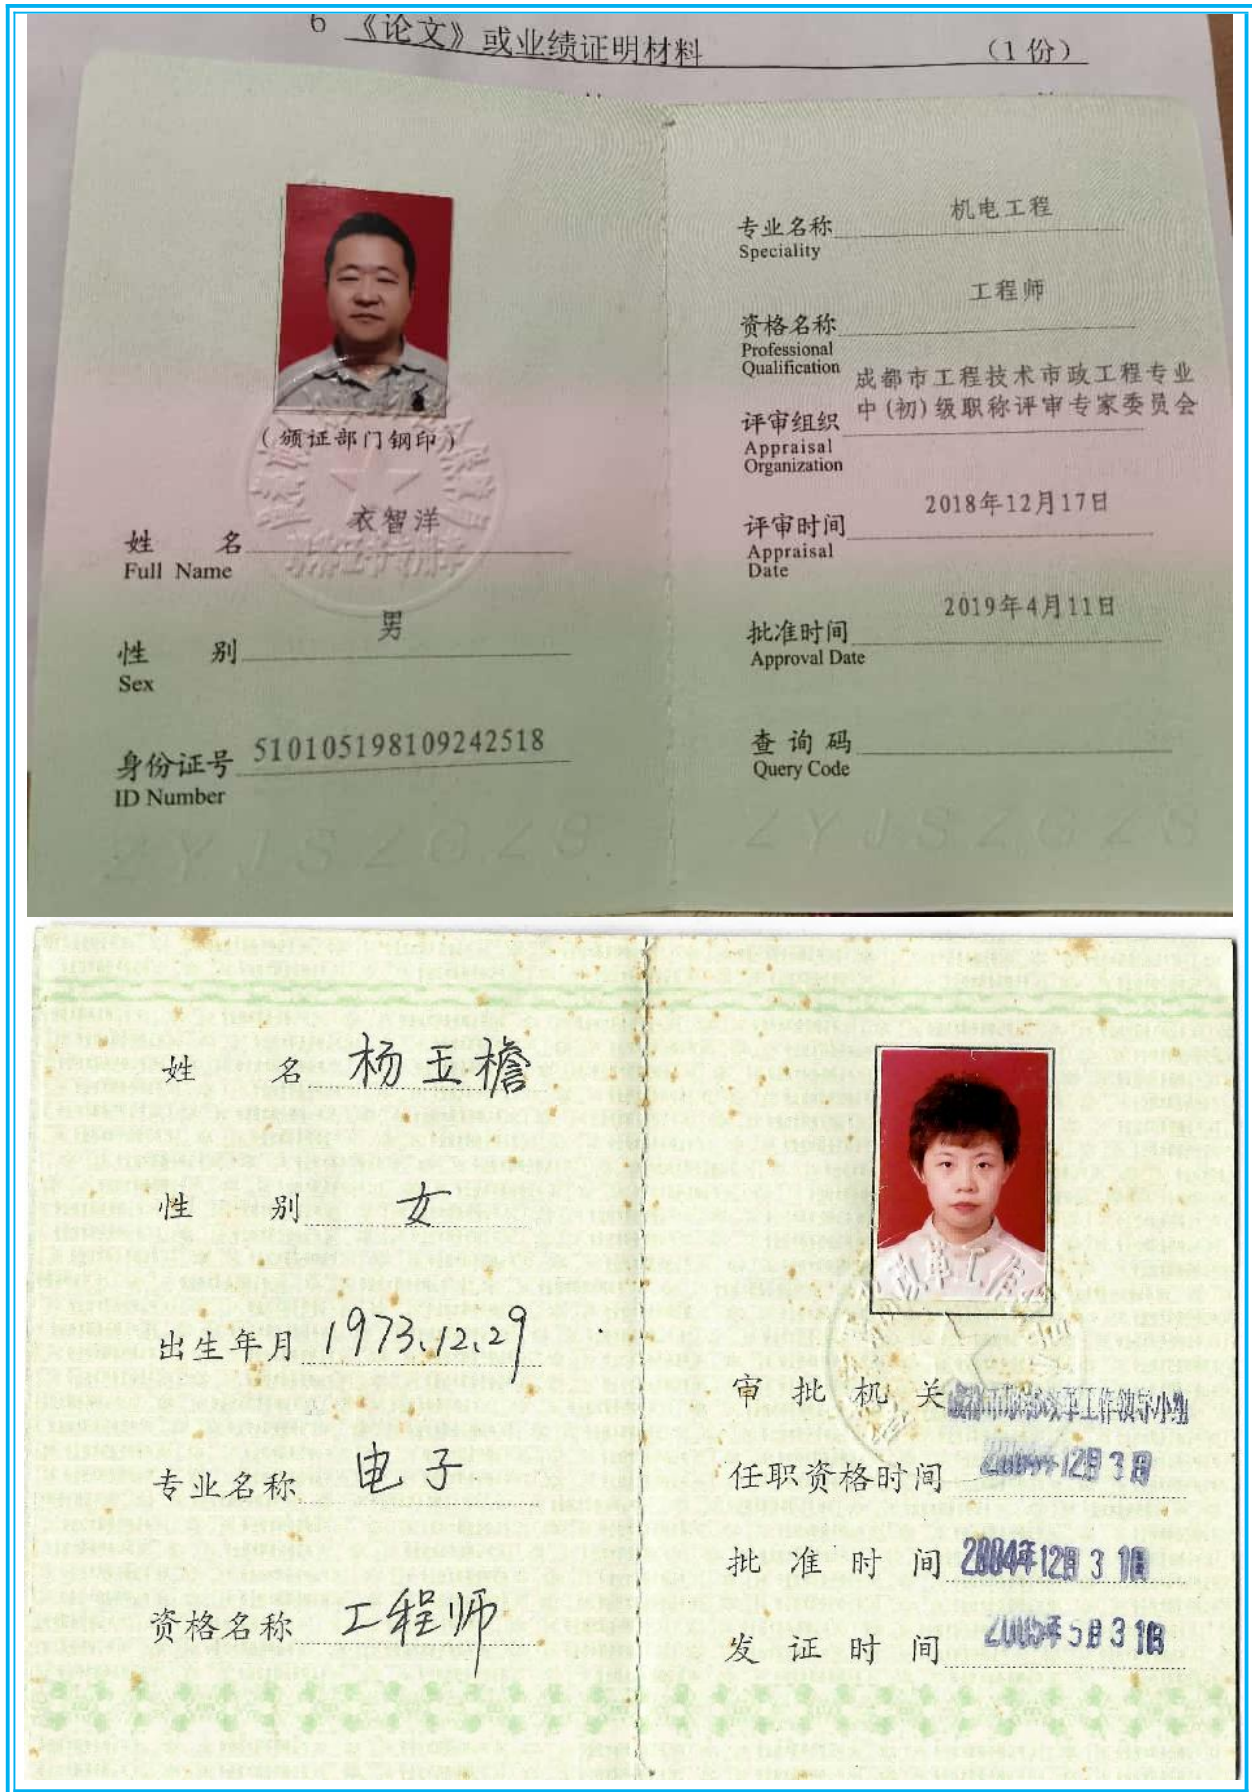 6 《论文》或业绩证明材料 （1 份）
（颁证部门钢印）
姓 名 衣智洋
Full Name
性 别 男
Sex
身份证号 510105198109242518
ID Number
专业名称 机电工程
Speciality
资格名称 工程师
Professional
Qualification
评审组织 成都市工程技术市政工程专业
中(初)级职称评审专家委员会
Appraisal
Organization
评审时间 2018年12月17日
Appraisal
Date
批准时间 2019年4月11日
Approval Date
查询码
Query Code
ZYJSZGZS
ZYJSZGZS
姓 名 杨玉檐
性 别 女
出生年月 1973.12.29
专业名称 电子
资格名称 工程师
审批机关 成都市职称改革工作领导小组
任职资格时间 12月3日
批准时间 2004年12月31日
发证时间 2005年5月31日